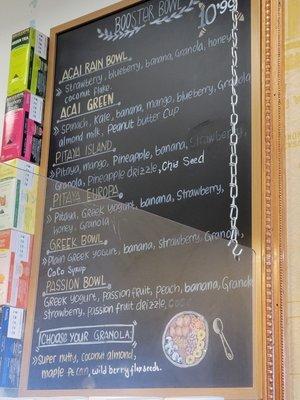 BOOSTER BOWL
10.99
ACAI RAIN BOWL
Strawberry, blueberry, banana, Granola, honey
coconut flake.
ACAI GREEN
Spinach, Kale, banana, mango, blueberry, Granola
almond milk, Peanut butter Cup
PITAYA ISLAND
Pitaya, mango, Pineapple, banana, strawberry
Granola, Pineapple drizzle, Chia Seed
PITAYA EUROPA
Pitaya, Greek yogurt, banana, Strawberry,
honey, Granola
GREEK BOWL
Plain Greek yogurt, banana, strawberry, Granola
Coco Syrup
PASSION BOWL
Greek yogurt, Passion fruit, Peach, banana, Granola
strawberry, Passion fruit drizzle,
CHOOSE YOUR GRANOLA
Super nutty, Coconut almond,
maple Pecan, wild berry flaxseeds.